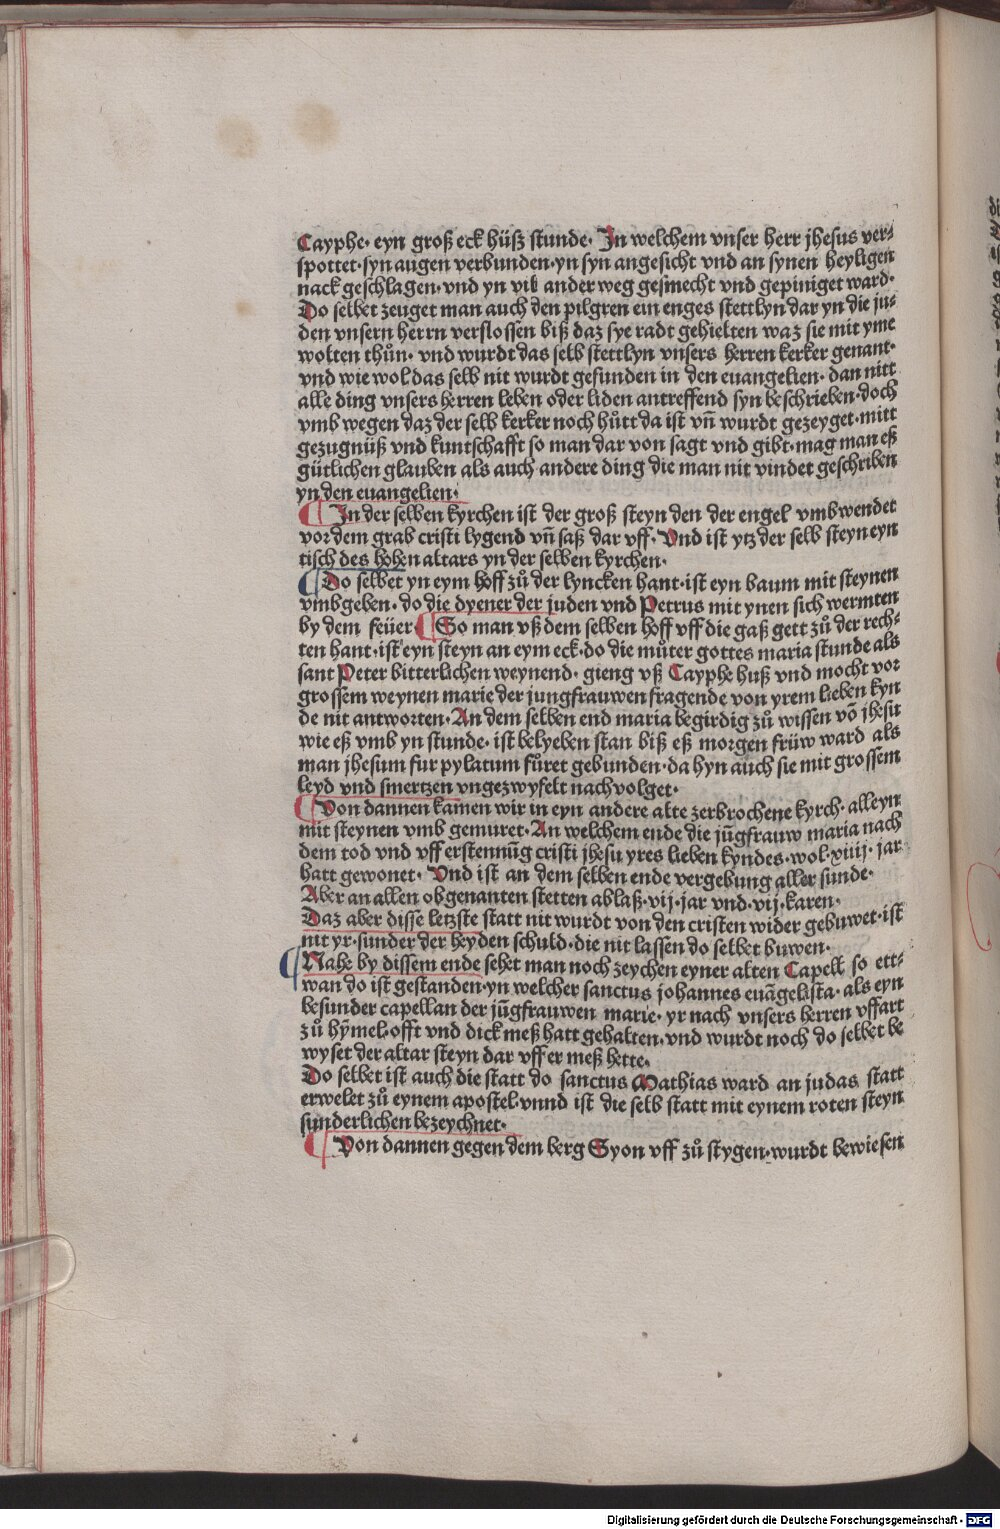 Cayphe· eyn groß eck hüsz stunde· In welchem vnser herr jhesus ver-
spottet·syn augen verbunden·yn syn angesicht vnd an synen heyligen
nack geschlagen·vnd yn vil ander weg gesmecht vnd gepiniget ward·
Do selbet zeuget man auch den pilgren ein enges stettlyn dar yn die ju-
den vnsern herrn verslossen biß daz sye radt gehielten waz sie mit yme
wolten thůn· vnd wurdt das selb stettlyn vnsers herren kerker genant·
vnd wie wol das selb nit wurdt gefunden in den euangelien· dan nitt
alle ding vnsers herren leben oder liden antreffend syn beschrieben·doch
vmb wegen daz der selb kerker noch hůtt da ist vñ wurdt gezeyget·mitt
gezugnüß vnd kuntschafft so man dar von sagt vnd gibt·mag man eß
gütlichen glauben als auch andere ding die man nit vindet geschriben
yn den euangelien·
¶ In der selben kyrchen ist der groß steyn den der engel vmbwendet
vor dem grab cristi lygend vñ saß dar vff· Vnd ist ytz der selb steyn eyn
tisch des hohen altars yn der selben kyrchen·
¶ Do selbet yn eym hoff zů der lyncken hant·ist eyn baum mit steynen
vmbgeben·do die dyener der juden vnd Petrus mit ynen sich wermten
by dem feüer ¶ So man vß dem selben hoff vff die gaß gett zů der rech-
ten hant·ist eyn steyn an eym eck·do die můter gottes maria stunde als
sant Peter bitterlichen weynend· gieng vß Cayphe huß vnd mocht vor
grossem weynen marie der jungfrauwen fragende von yrem lieben kyn
de nit antworten· An dem selben end maria begirdig zů wissen võ jhesu
wie eß vmb yn stunde· ist belyeben stan biß eß morgen früw ward als
man jhesum fur pylatum fůret gebunden·da hyn auch sie mit grossem
leyd vnd smertzen vngezwyfelt nachvolget·
¶ Von dannen kamen wir in eyn andere alte zerbrochene kyrch· alleyn
mit steynen vmb gemuret· An welchem ende die jũgfrauw maria nach
dem tod vnd vff erstennũg cristi jhesu yres lieben kyndes·wol·xiiij· jar
hatt gewonet· Vnd ist an dem selben ende vergebung aller sunde·
Aber an allen obgenanten stetten ablaß·vij·jar vnd·vij·karen·
Daz aber disse letzste statt nit wurdt von den cristen wider gebuwet·ist
nit yr·sunder der heyden schuld·die nit lassen do selbet buwen·
¶ Nahe by dissem ende sehet man noch zeychen eyner alten Capell so ett-
wan do ist gestanden·yn welcher sanctus johannes euãgelista·als eyn
besunder capellan der jũgfrauwen marie· yr nach vnsers herren vffart
zů hỹmel·offt vnd dick meß hatt gehalten·vnd wurdt noch do selbet be
wyset der altar steyn dar vff er meß hette·
Do selbet ist auch die statt do sanctus Mathias ward an judas statt
erwelet zů eynem apostel·vnnd ist die selb statt mit eynem roten steyn
sunderlichen bezeychnet·
¶ Von dannen gegen dem berg Syon vff zů stygen·wurdt bewiesen
Digitalisierung gefördert durch die Deutsche Forschungsgemeinschaft - DFG